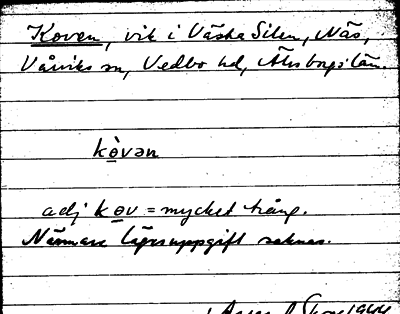 Koven, vik i Västra Silen, Näs,
Vårviks sn, Vedbo hd, Älvsborgs län.
kòvən
adj kov = mycket trång.
Närmare lägesuppgift saknas.